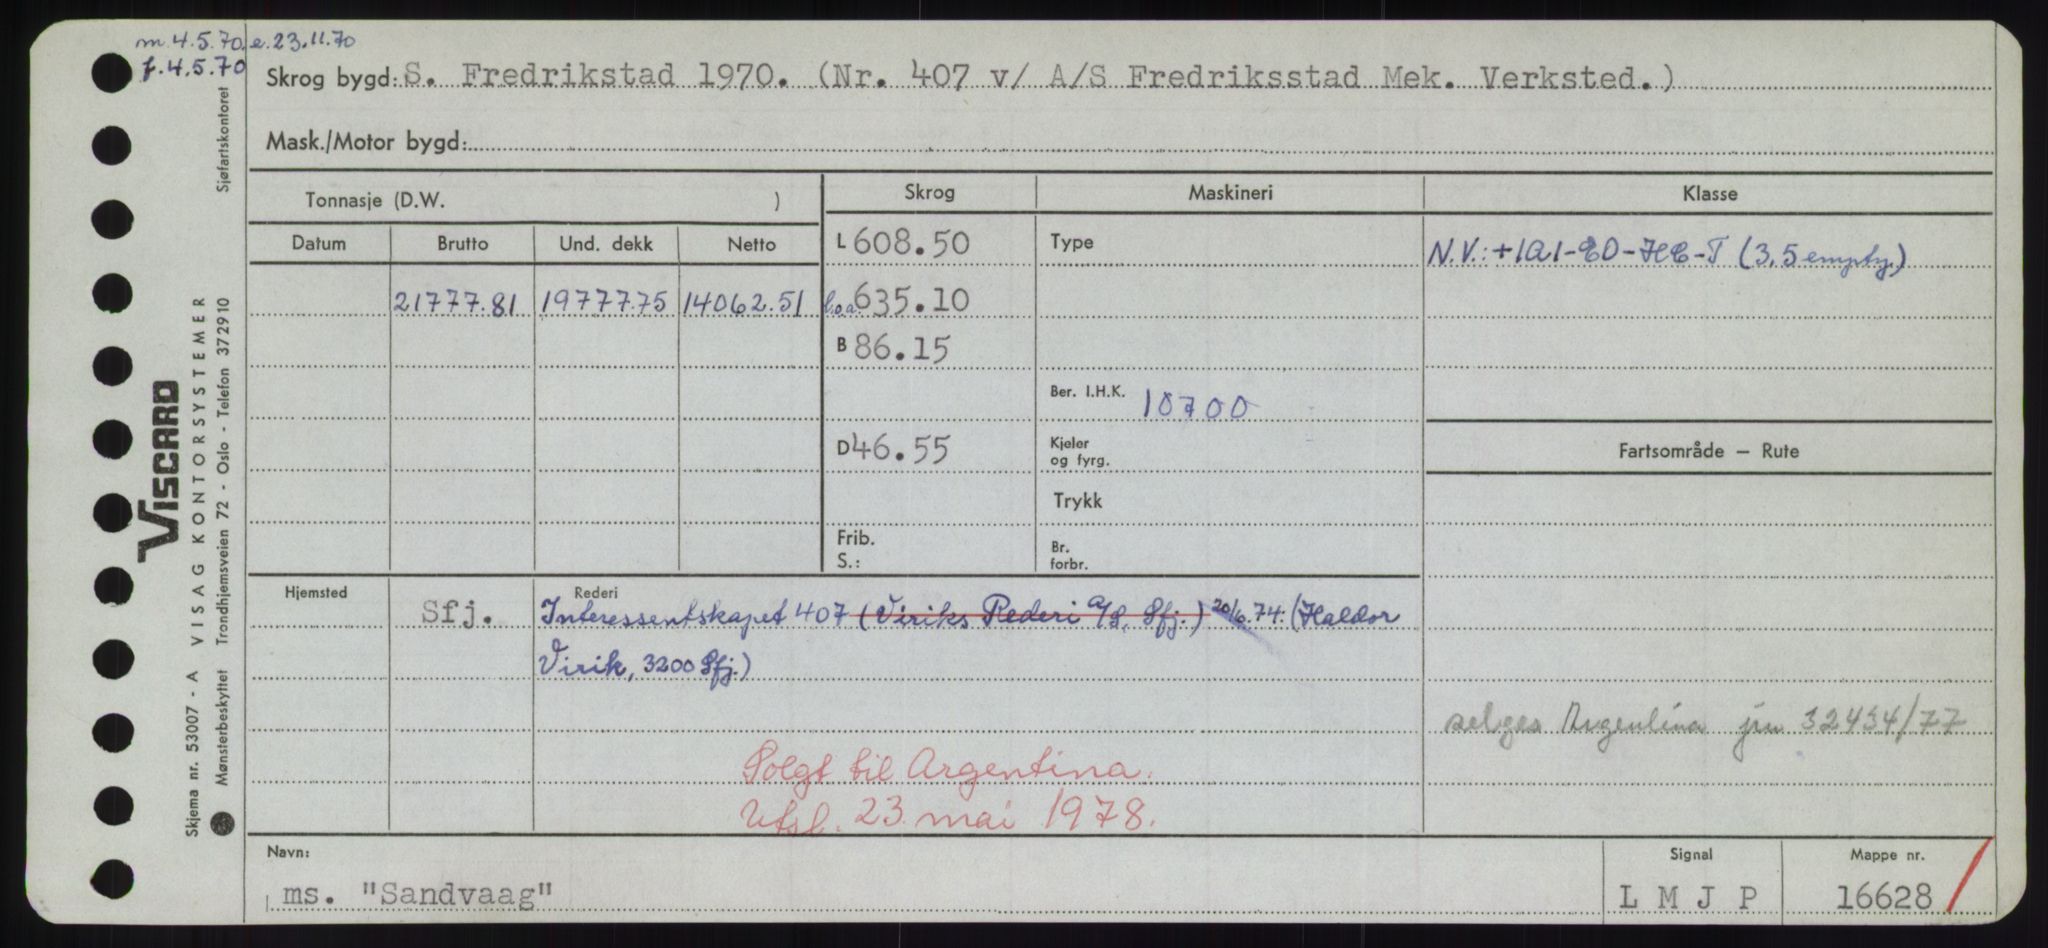 m.4.5.70. e.23.11.70
f.4.5.70
Skrog bygd: S. Fredrikstad 1970. (Nr. 407 v/ A/S Fredriksstad Mek. Verksted.)
Mask./Motor bygd:
Tonnasje (D.W. )
Skrog
Maskineri
Klasse
Datum Brutto Und. dekk Netto
L 608.50
Type
N.V.: +1A1-EO-HC-T (3,5 empty.)
21777.81 19777.75 14062.51
l.o.a. 635.10
B 86.15
Ber. I.H.K. 10700
D 46.55
Kjeler
og fyrg.
Fartsområde – Rute
Trykk
Frib.
S.:
Br.
forbr.
Hjemsted
Sfj.
Rederi
Interessentskapet 407 (Viriks Rederi A/S, Sfj.) 20/6.74: (Haldor
Virik, 3200 Sfj.)
selges Argentina jnr 32434/77
Solgt til Argentina.
Utsl. 23. mai 1978.
Navn:
ms. "Sandvaag"
Signal
L M J P
Mappe nr.
16628
Skjema nr. 53007 - A VISAG KONTORSYSTEMER
VISCARD
Mønsterbeskyttet Trondhjemsveien 72 - Oslo - Telefon 372910 Sjøfartskontoret